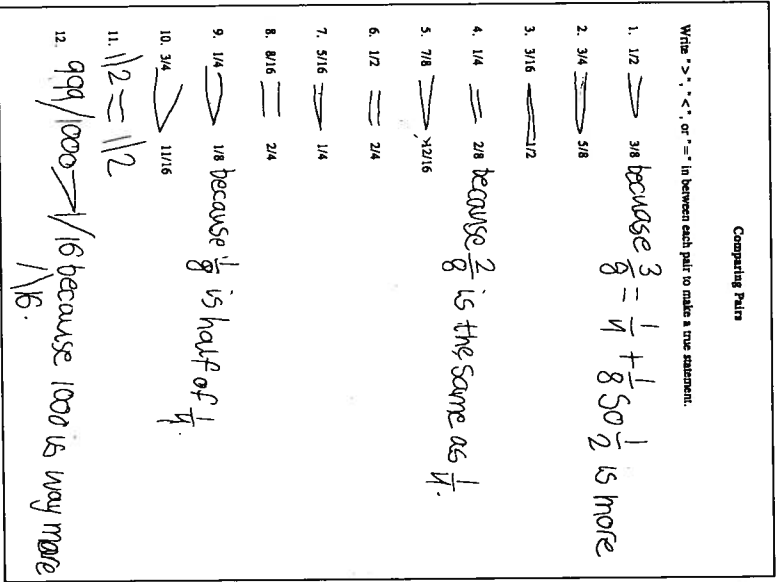 Comparing Pairs
Write ">", "<", or "=" in between each pair to make a true statement.
1. 1/2 > 3/8 becuase 3/8 = 1/4 + 1/8 so 1/2 is more
2. 3/4 > 5/8
3. 3/16 < 1/2
4. 1/4 = 2/8 because 2/8 is the same as 1/4.
5. 7/8 > 12/16
6. 1/2 = 2/4
7. 5/16 > 1/4
8. 8/16 = 2/4
9. 1/4 > 1/8 because 1/8 is half of 1/4.
10. 3/4 > 11/16
11. 1/2 = 1/2
12. 999/1000 > 1/16 because 1000 is way more
1/16.